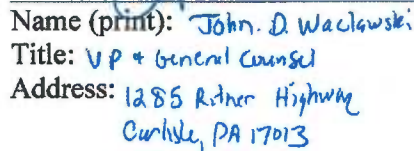 Name (print): John. D. Waclawski
Title: VP & General Counsel
Address: 1285 Ritner Highway
Carlisle, PA 17013